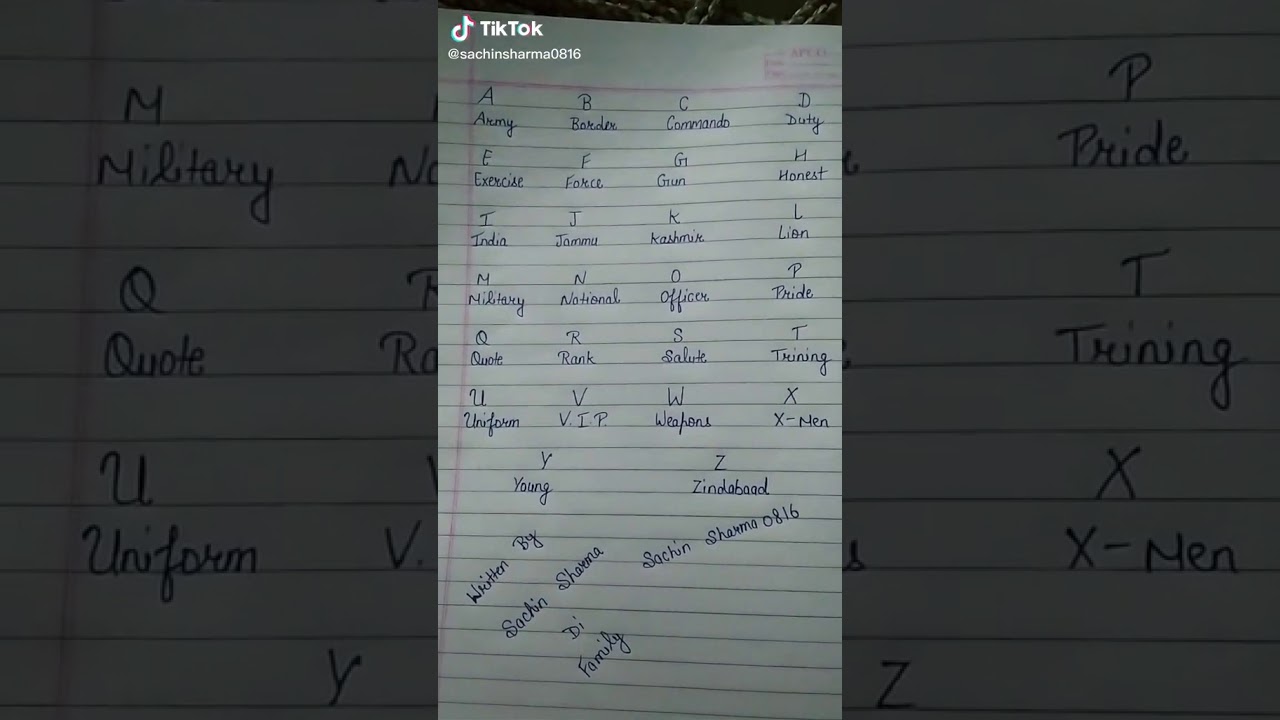 TikTok
@sachinsharma0816
A B C D
Army Border Commando Duty
E F G H
Exercise Force Gun Honest
I J K L
India Jammu Kashmir Lion
M N O P
Military National Officer Pride
Q R S T
Quote Rank Salute Trining
U V W X
Uniform V.I.P. Weapons X-Men
Y Z
Young Zindabaad
Written By
Sachin Sharma
Di
Family
Sachin Sharma 0816
M
Military
Q
Quote
U
Uniform
Y
P
Pride
T
Trining
X
X-Men
Z